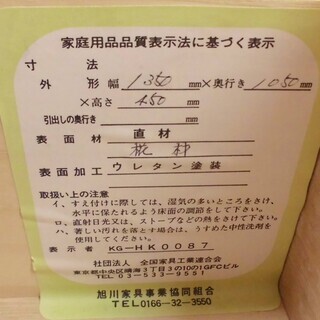 家庭用品品質表示法に基づく表示
寸法
外形 幅 1,350 mm×奥行き 1050 mm
×高さ 450 mm
引出しの奥行き mm
表面材 直材
椛材
表面加工 ウレタン塗装
取扱い上の注意
イ、すえ付けに際しては、湿気の多いところをさけ、
水平に保たれるよう床面の調節をして下さい。
ロ、直射日光又は、ストーブなどの熱をさけて下さい。
ハ、著しい汚れを落とす場合は、うすめた中性洗剤を
使用してください。
表示者 KG-HK0087
社団法人 全国家具工業連合会
東京都中央区晴海3丁目3の10の1GFCビル
TEL 03-533-9551
旭川家具事業協同組合
TEL 0166-32-3550